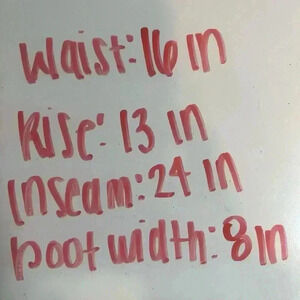 waist: 16 in
Rise: 13 in
inseam: 24 in
boot width: 8 in